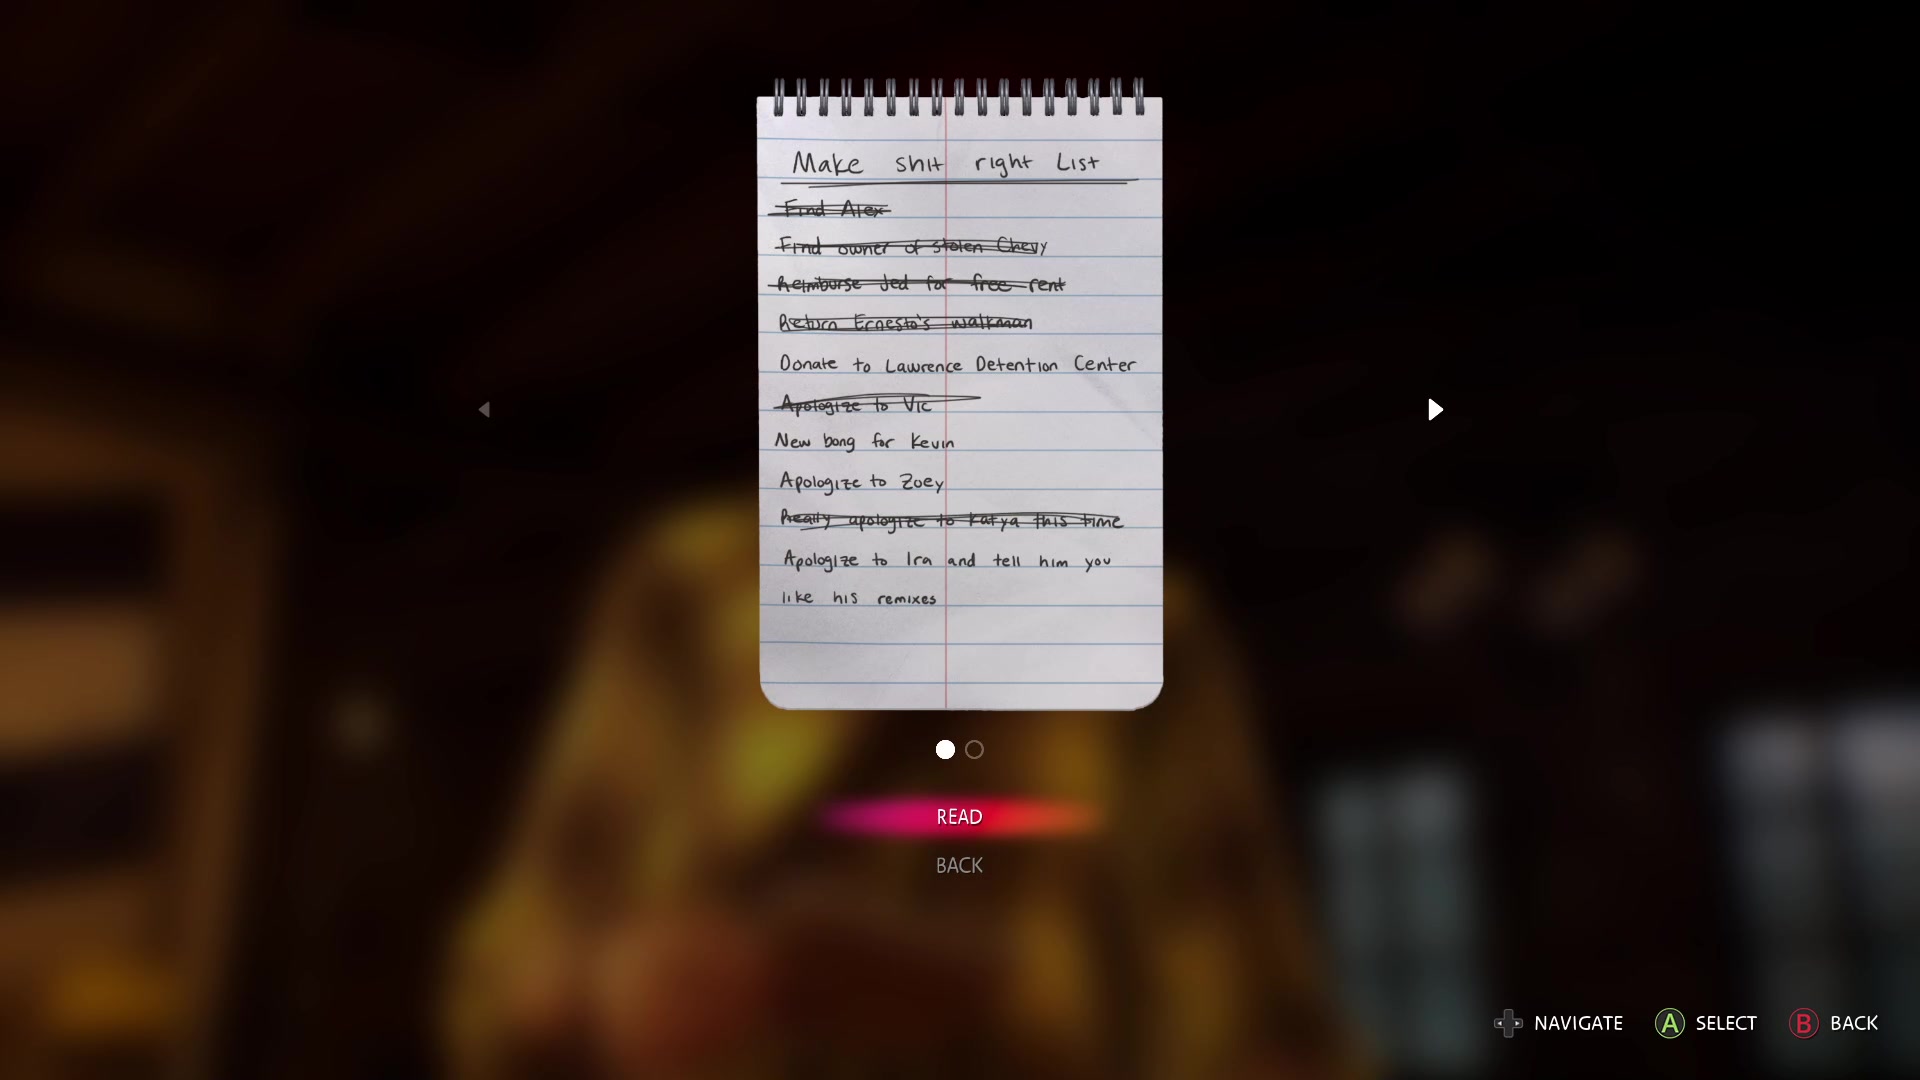 Make shit right List
Find Alex
Find owner of stolen Chevy
Reimburse Jed for free rent
Return Ernesto's walkman
Donate to Lawrence Detention Center
Apologize to Vic
New bong for Kevin
Apologize to Zoey
Really apologize to Katya this time
Apologize to Ira and tell him you
like his remixes
READ
BACK
NAVIGATE A SELECT B BACK